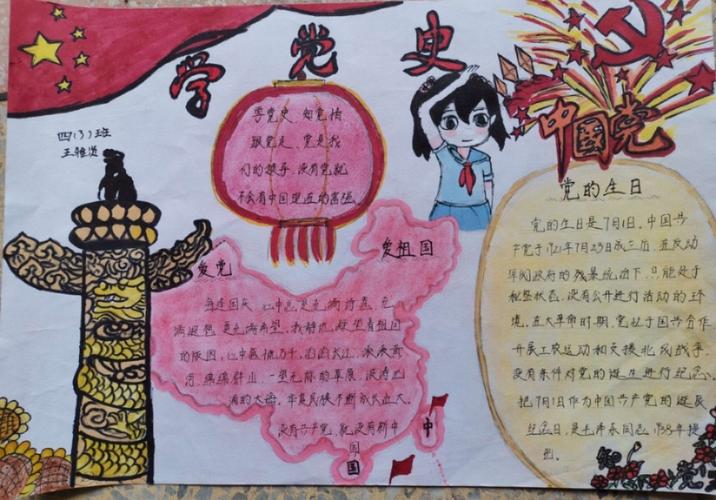 学党史
四(3)班
王雅
学党史 知党情
跟党走 党是我
们的领导 没有党就
不会有中国现在的富强。
中国党
爱党
爱祖国
每逢国庆 心中总是充满诗意 充
满遐想 更充满希望 我静静凝望着祖国
的版图 心中感慨万千 滔滔长江 滚滚黄
河 绵绵群山 一望无际的草原 波涛汹
涌的大海 华夏民族不断成长壮大
没有共产党 就没有新中
国
中
国
党的生日
党的生日是7月1日。中国共
产党于1921年7月23日成立后 在反动
军阀政府的残暴统治下 只能处于
秘密状态 没有公开进行活动的环
境。在大革命时期 党处于国共合作
开展工农运动和支援北伐战争
没有条件对党的诞生进行纪念
把7月1日作为中国共产党的诞辰
纪念日 是毛泽东同志1938年提
出